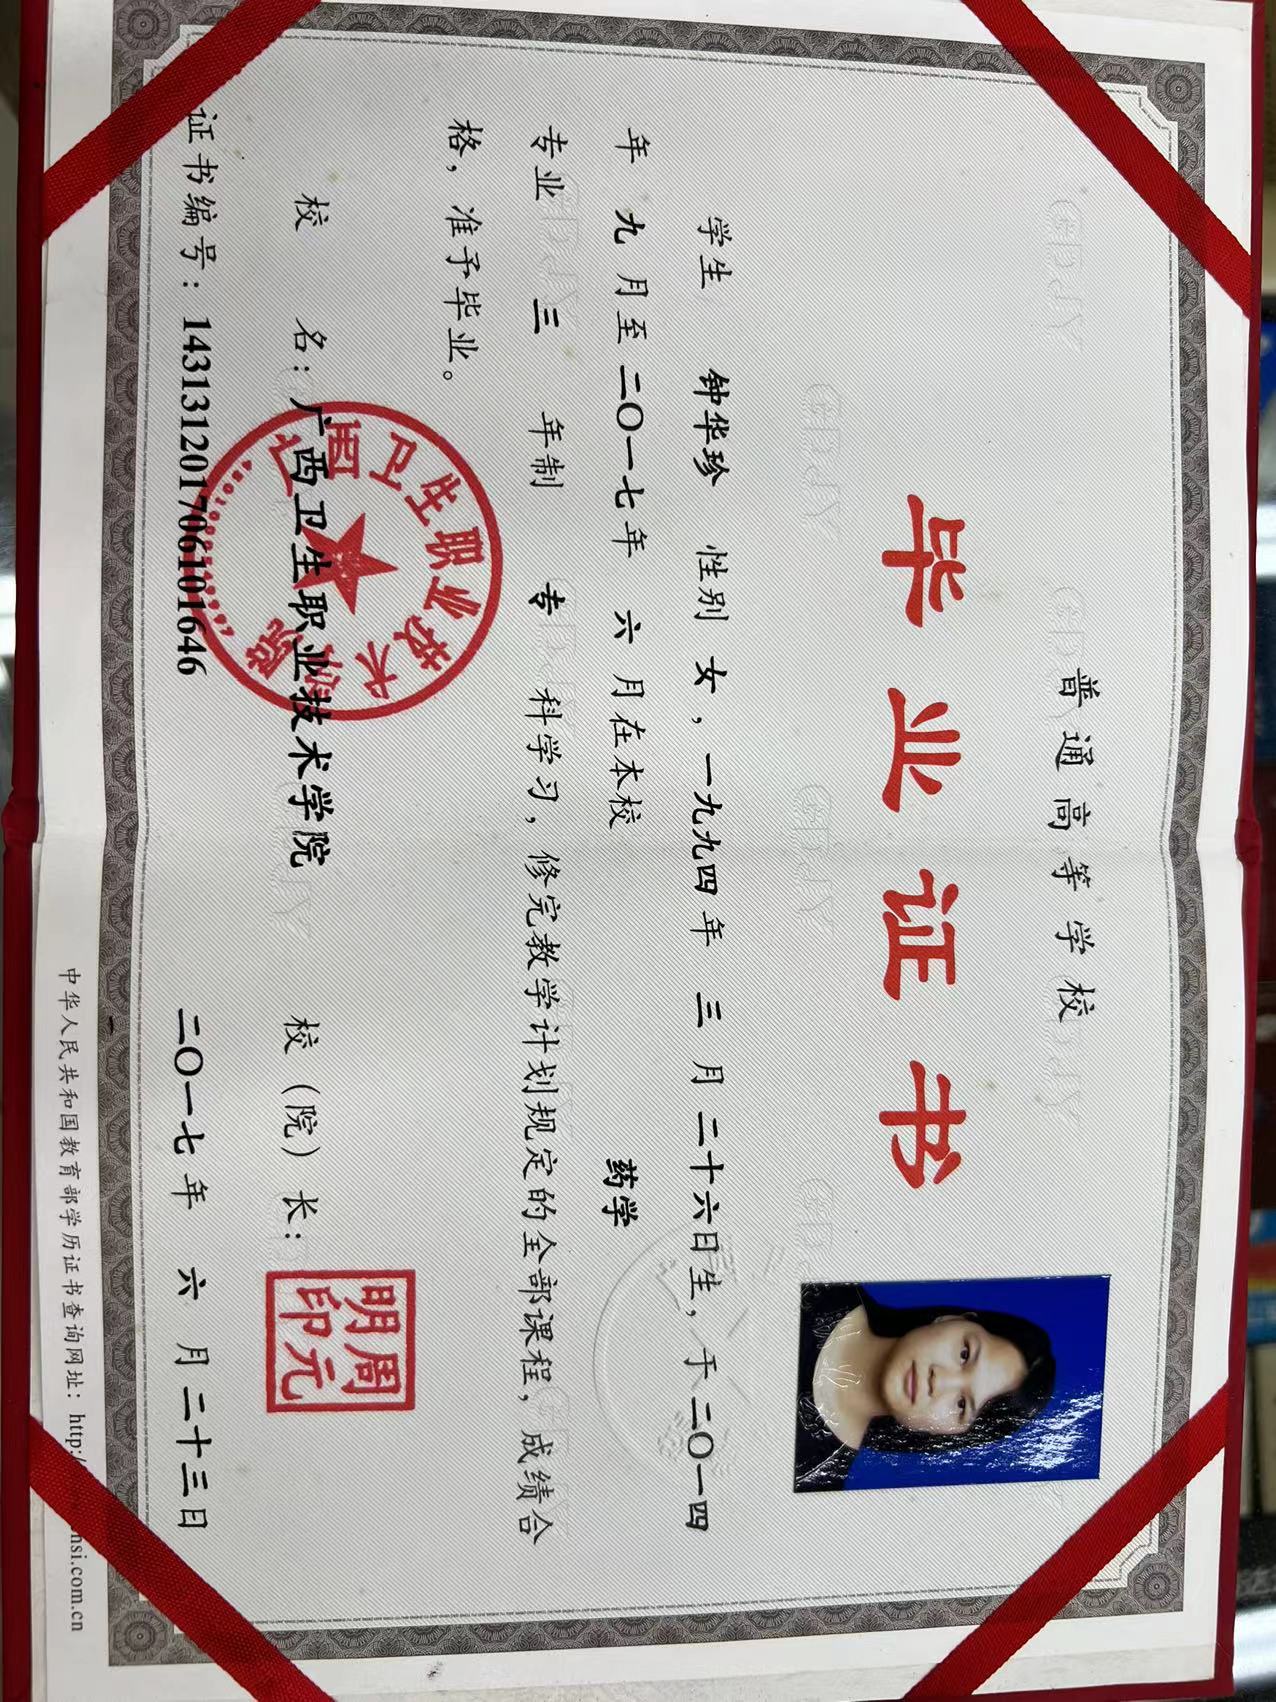 普通高等学校
毕业证书
学生 钟华珍 性别 女，一九九四年 三 月二十六日生，于二〇一四
年 九 月至二〇一七年 六 月在本校 药学
专业 三 年制 专 科学习，修完教学计划规定的全部课程，成绩合
格，准予毕业。
校 名：广西卫生职业技术学院 校（院）长：
周元明印
广西卫生职业技术学院
证书编号：143131201706101646 二〇一七年 六 月二十三日
中华人民共和国教育部学历证书查询网址：http:/ hsi.com.cn